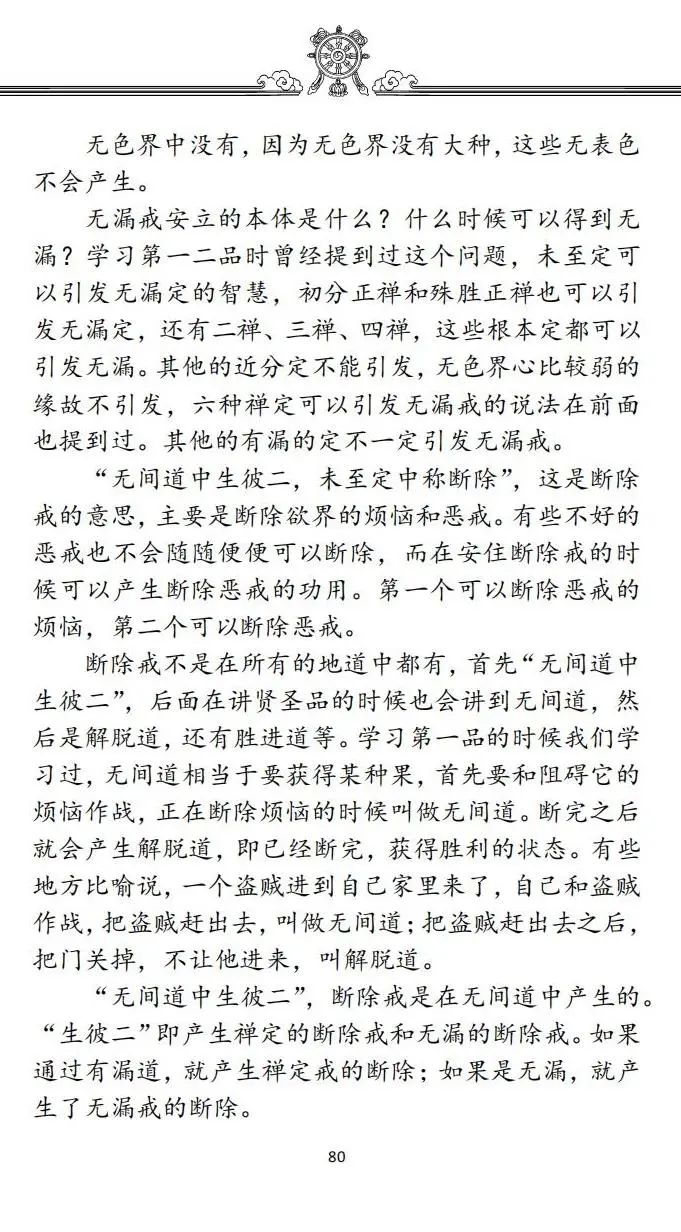 无色界中没有，因为无色界没有大种，这些无表色
不会产生。
无漏戒安立的本体是什么？什么时候可以得到无
漏？学习第一二品时曾经提到过这个问题，未至定可
以引发无漏定的智慧，初分正禅和殊胜正禅也可以引
发无漏定，还有二禅、三禅、四禅，这些根本定都可以
引发无漏。其他的近分定不能引发，无色界心比较弱的
缘故不引发，六种禅定可以引发无漏戒的说法在前面
也提到过。其他的有漏的定不一定引发无漏戒。
“无间道中生彼二，未至定中称断除”，这是断除
戒的意思，主要是断除欲界的烦恼和恶戒。有些不好的
恶戒也不会随随便便可以断除，而在安住断除戒的时
候可以产生断除恶戒的功用。第一个可以断除恶戒的
烦恼，第二个可以断除恶戒。
断除戒不是在所有的地道中都有，首先“无间道中
生彼二”，后面在讲贤圣品的时候也会讲到无间道，然
后是解脱道，还有胜进道等。学习第一品的时候我们学
习过，无间道相当于要获得某种果，首先要和阻碍它的
烦恼作战，正在断除烦恼的时候叫做无间道。断完之后
就会产生解脱道，即已经断完，获得胜利的状态。有些
地方比喻说，一个盗贼进到自己家里来了，自己和盗贼
作战，把盗贼赶出去，叫做无间道；把盗贼赶出去之后，
把门关掉，不让他进来，叫解脱道。
“无间道中生彼二”，断除戒是在无间道中产生的。
“生彼二”即产生禅定的断除戒和无漏的断除戒。如果
通过有漏道，就产生禅定戒的断除；如果是无漏，就产
生了无漏戒的断除。
80